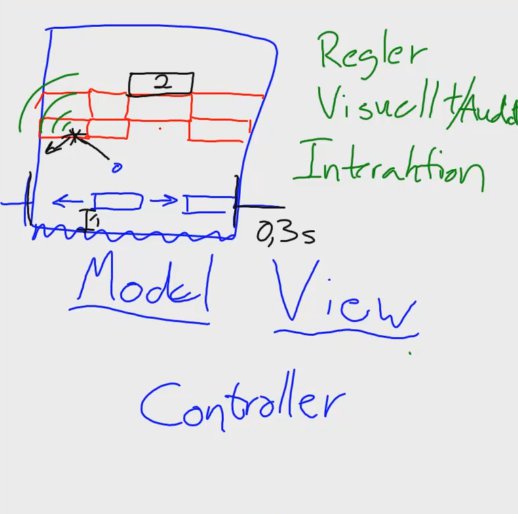 2
Regler
Visuellt/Audi
Interaktion
0,3s
Model View
Controller